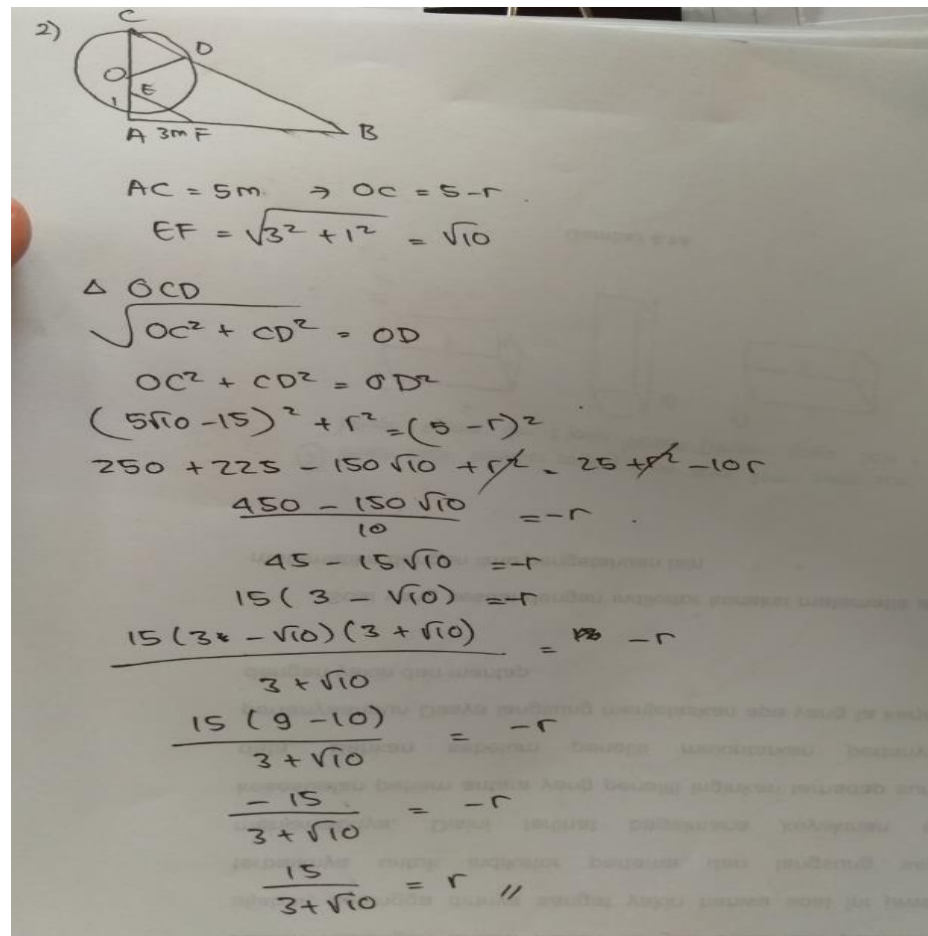 2)
C
D
O
E
1
A 3m F
B
AC = 5m. → OC = 5-r.
EF = √(3² + 1²) = √10
△ OCD
√(OC² + CD²) = OD
OC² + CD² = OD²
(5√10 - 15)² + r² = (5 - r)²
250 + 225 - 150√10 + r² = 25 + r² - 10r
(450 - 150√10)/10 = -r.
45 - 15√10 = -r
15(3 - √10) = -r
15(3 - √10)(3 + √10)/(3 + √10) = -r
15(9 - 10)/(3 + √10) = -r
-15/(3 + √10) = -r
15/(3 + √10) = r //